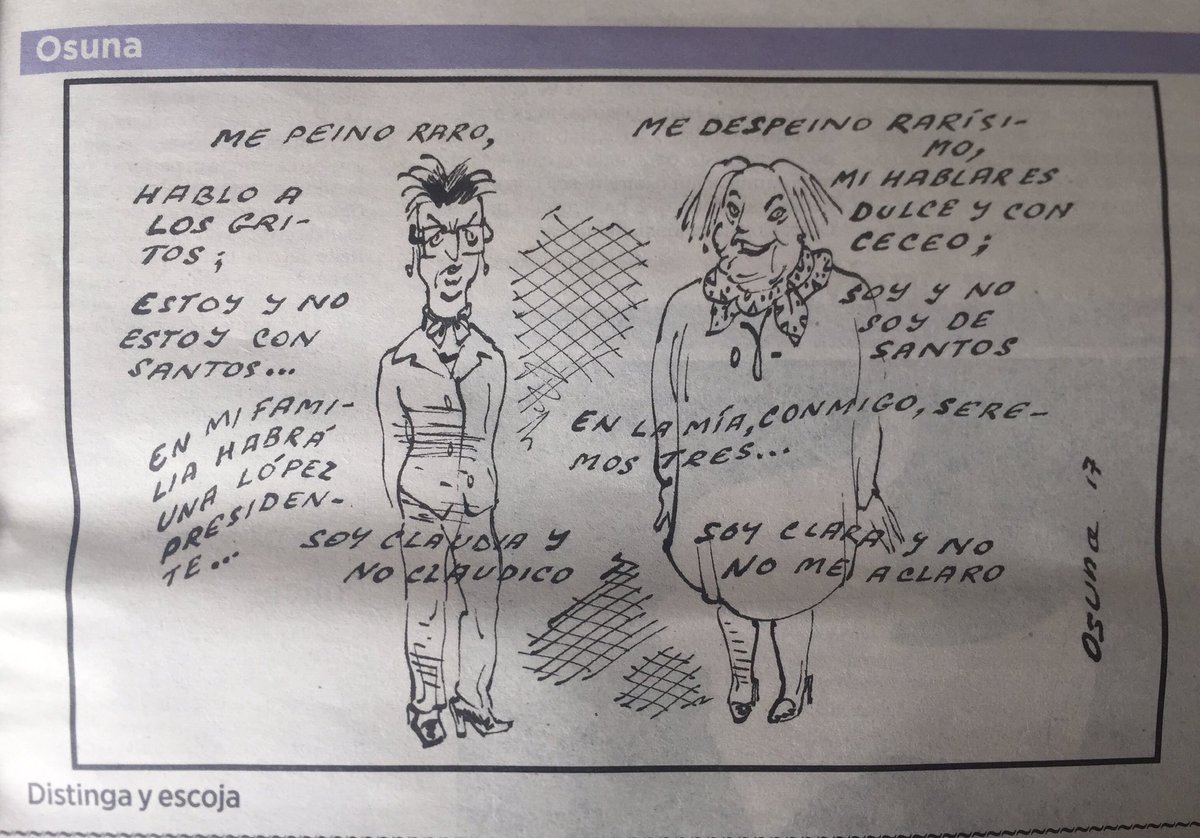 Osuna
ME PEINO RARO,
HABLO A
LOS GRI-
TOS;
ESTOY Y NO
ESTOY CON
SANTOS...
EN MI FAMI-
LIA HABRÁ
UNA LÓPEZ
PRESIDEN-
TE...
SOY CLAUDIA Y
NO CLAUDICO
ME DESPEINO RARÍSI-
MO,
MI HABLAR ES
DULCE Y CON
CECEO;
SOY Y NO
SOY DE
SANTOS
EN LA MÍA, CONMIGO, SERE-
MOS TRES...
SOY CLARA Y NO
NO ME ACLARO
Osuna 17
Distinga y escoja